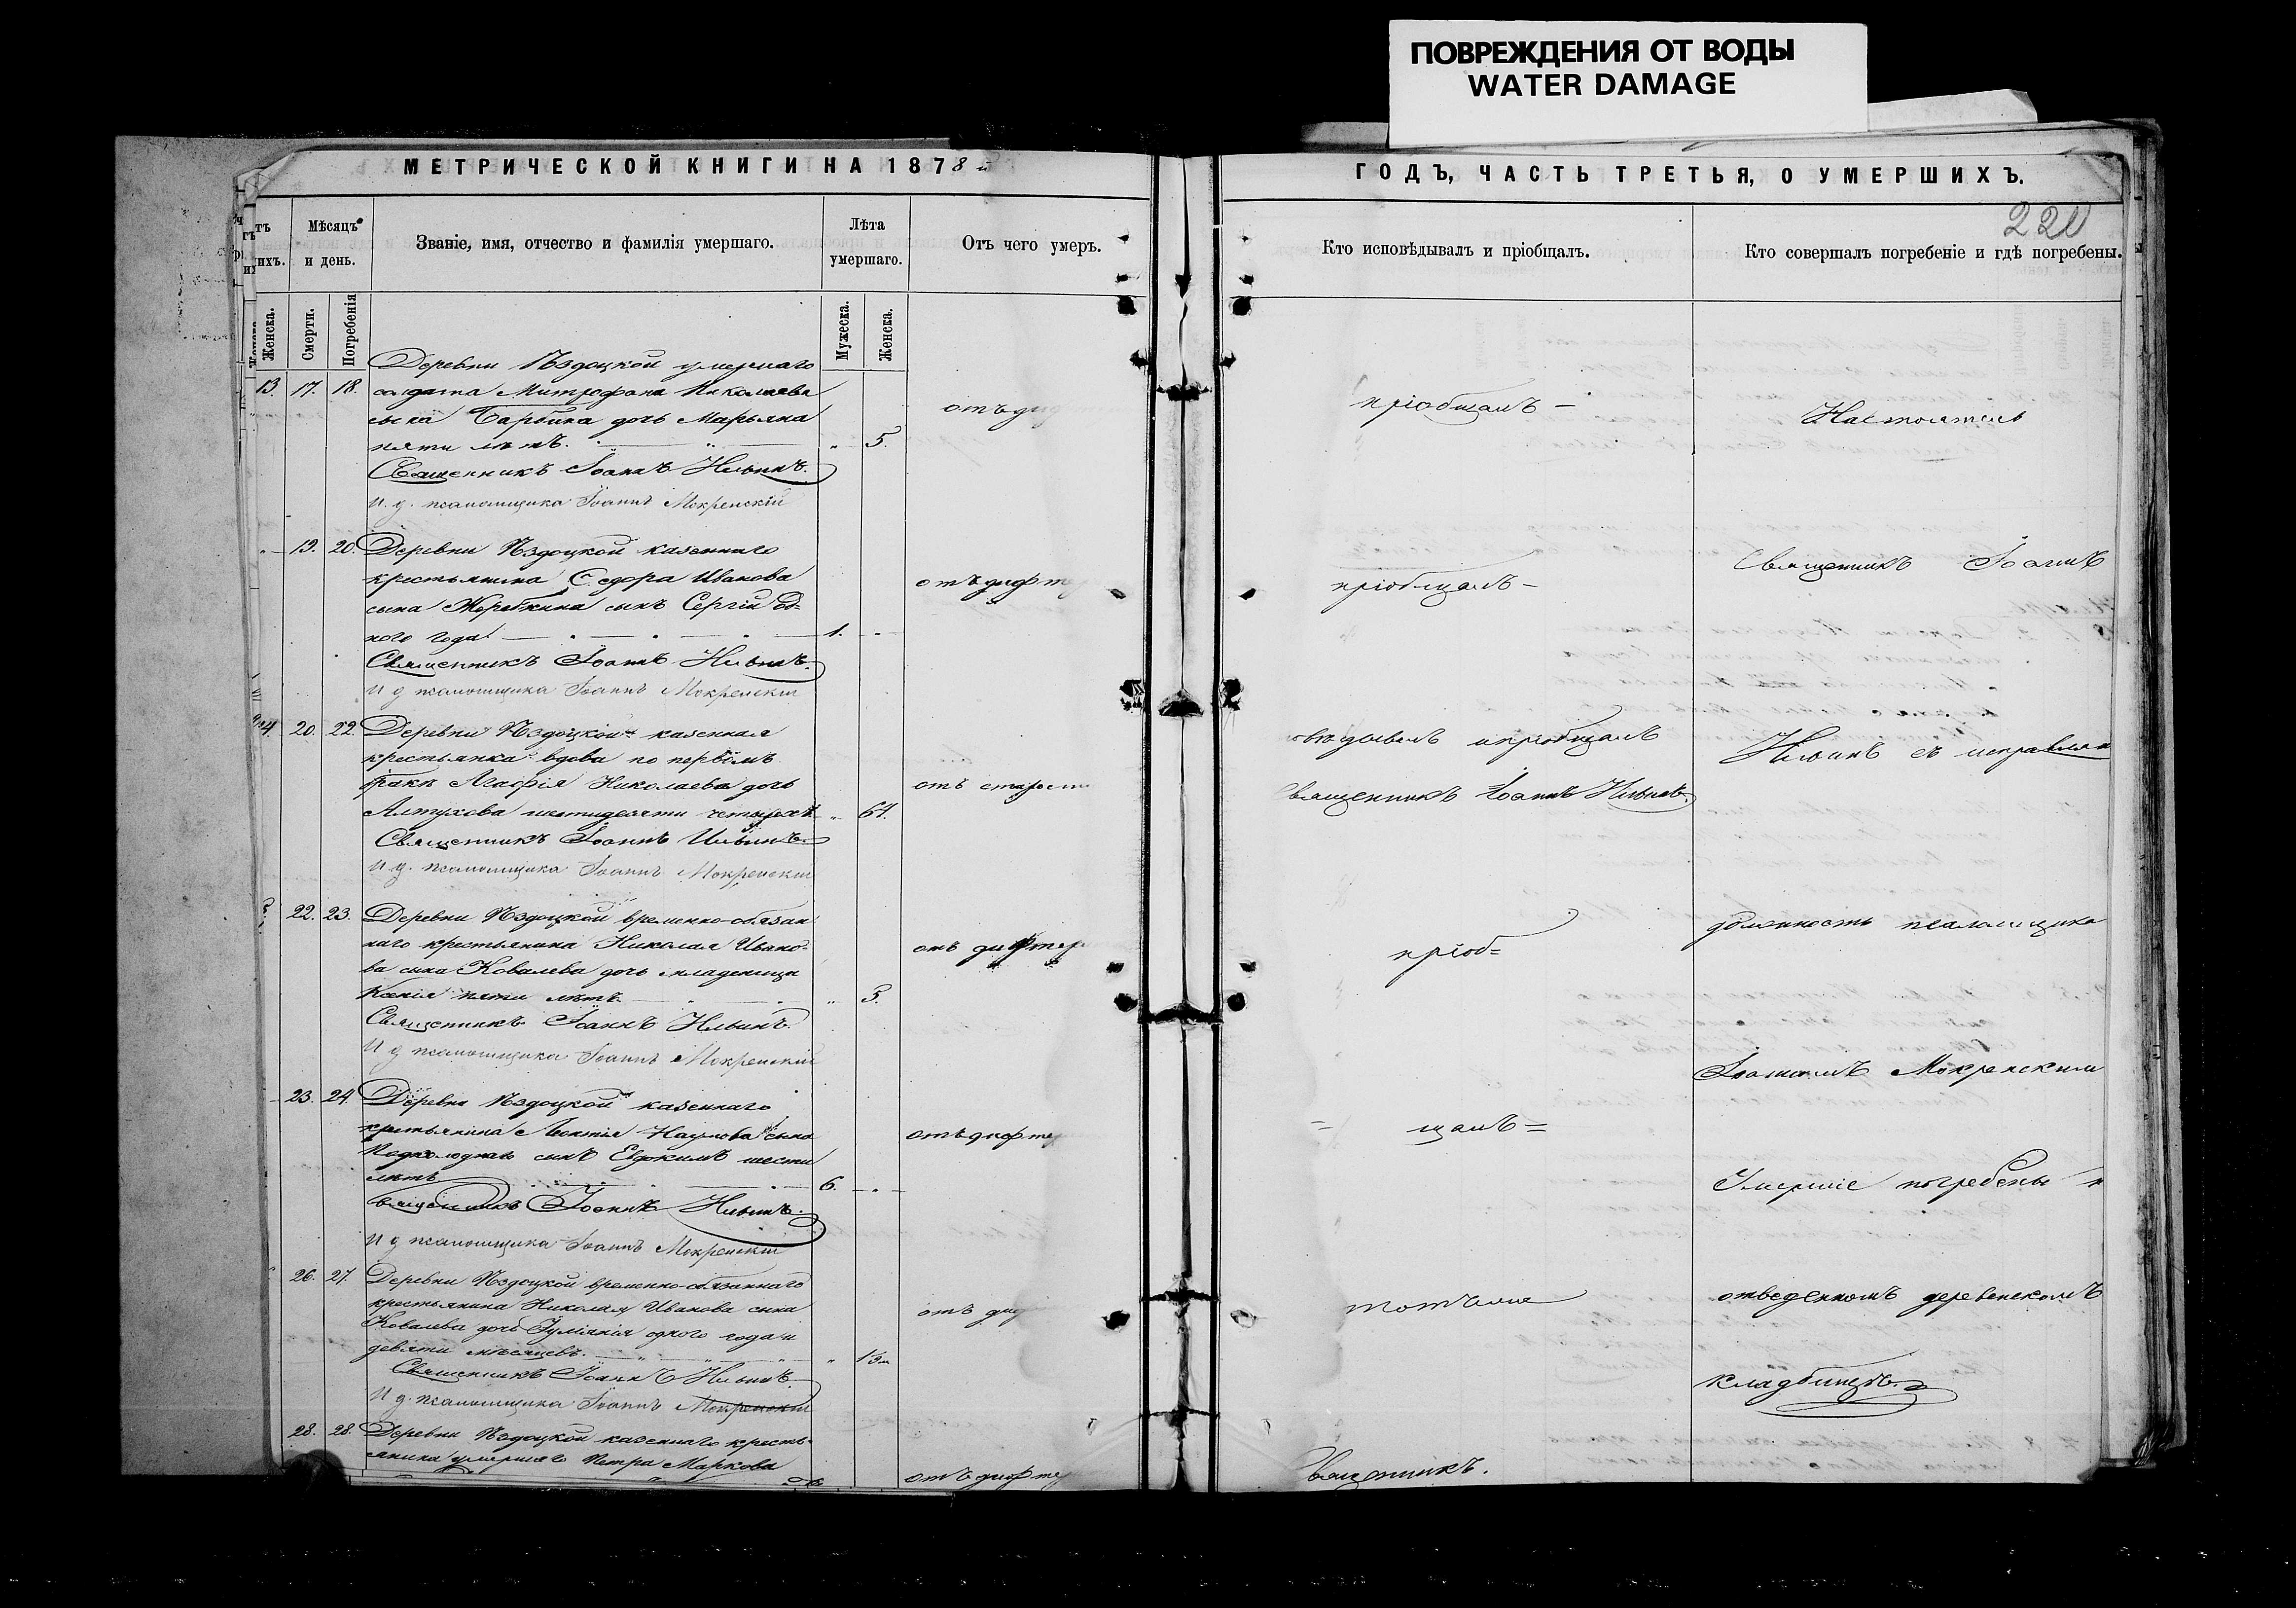 ПОВРЕЖДЕНИЯ ОТ ВОДЫ
WATER DAMAGE
МЕТРИЧЕСКОЙ КНИГИ НА 1878
ГОДЪ, ЧАСТЬ ТРЕТЬЯ, О УМЕРШИХЪ.
Мѣсяцъ и день.
Званіе, имя, отчество и фамилія умершаго.
Лѣта умершаго.
Отъ чего умеръ.
Кто исповѣдывалъ и пріобщалъ.
Кто совершалъ погребеніе и гдѣ погребены.
Женска.
Смерти.
Погребенія
Мужеска.
Женска.
Деревни умершаго
13. 17. 18. солдата Митрофана Николаева
сына дочь Марьяна
пяти лѣтъ. 5.
Священникъ Іоаннъ Ильинъ.
И. д. псаломщика Іоаннъ Мокренскій
пріобщалъ
Настоятель
19. 20. Деревни казеннаго
крестьянина Сидора Иванова
сына Жеребкина сынъ Сергій од-
ного года 1.
Священникъ Іоаннъ Ильинъ.
И д псаломщика Іоаннъ Мокренскій
отъ дифте
пріобщалъ
Священникъ Іоаннъ
20. 22. Деревни казенная
крестьянка вдова по первомъ
бракѣ Агафія Николаева дочь
Алтухова шестидесяти четырехъ 64.
Священникъ Іоаннъ Ильинъ.
И д. псаломщика Іоаннъ Мокренскій
отъ старости
и пріобщалъ
Священникъ Іоаннъ Ильинъ.
Ильинъ съ исправлял
22. 23. Деревни временно-обязан
наго крестьянина Николая Ивано-
ва сына Ковалева дочь младенецъ
Ксенія пяти лѣтъ 5.
Священникъ Іоаннъ Ильинъ.
И д псаломщика Іоаннъ Мокренскій
отъ дифтер
пріоб=
должность псаломщика
Іоанномъ Мокренскимъ
23. 24. Деревни казеннаго
крестьянина Леонтія Наумова сына
сынъ Евдокимъ шести
лѣтъ 6.
Священникъ Іоаннъ Ильинъ.
И д псаломщика Іоаннъ Мокренскій
отъ дифтер
= щалъ =
Умершіе погребены н
26. 27. Деревни временно-обязаннаго
крестьянина Николая Иванова сына
Ковалева дочь одного года и
девяти мѣсяцевъ.
Священникъ Іоаннъ Ильинъ.
И д. псаломщика Іоаннъ Мокренскій
отъ ди
тотъ же
отведенномъ деревенскомъ
кладбищѣ.
28. 28. Деревни казеннаго кресть-
янина умершаго Петра Маркова
отъ дифте
Священникъ.